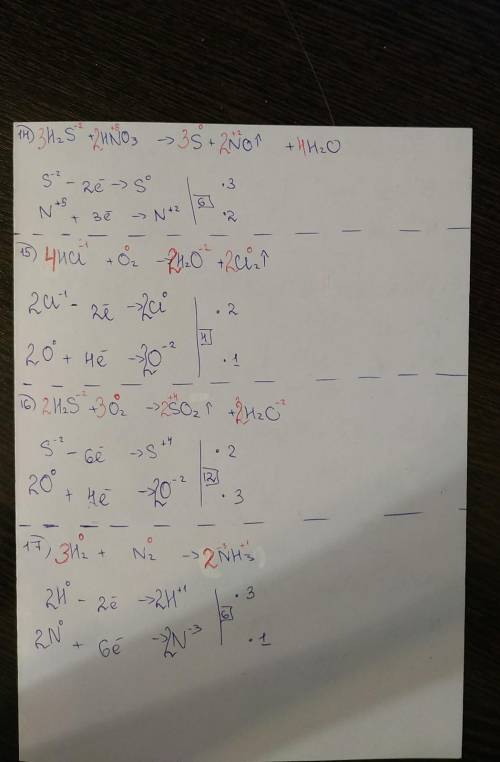 14) 3H₂S⁻² + 2HN⁺⁵O₃ → 3S⁰ + 2N⁺²O↑ + 4H₂O
S⁻² - 2ē → S⁰ | 6 | ·3
N⁺⁵ + 3ē → N⁺² | ·2
15) 4HCl⁻¹ + O₂⁰ → 2H₂O⁻² + 2Cl₂⁰↑
2Cl⁻¹ - 2ē → 2Cl⁰ | 4 | ·2
2O⁰ + 4ē → 2O⁻² | ·1
16) 2H₂S⁻² + 3O₂⁰ → 2S⁺⁴O₂↑ + 2H₂O⁻²
S⁻² - 6ē → S⁺⁴ | 12 | ·2
2O⁰ + 4ē → 2O⁻² | ·3
17) 3H₂⁰ + N₂⁰ → 2N⁻³H₃⁺¹
2H⁰ - 2ē → 2H⁺¹ | 6 | ·3
2N⁰ + 6ē → 2N⁻³ | ·1